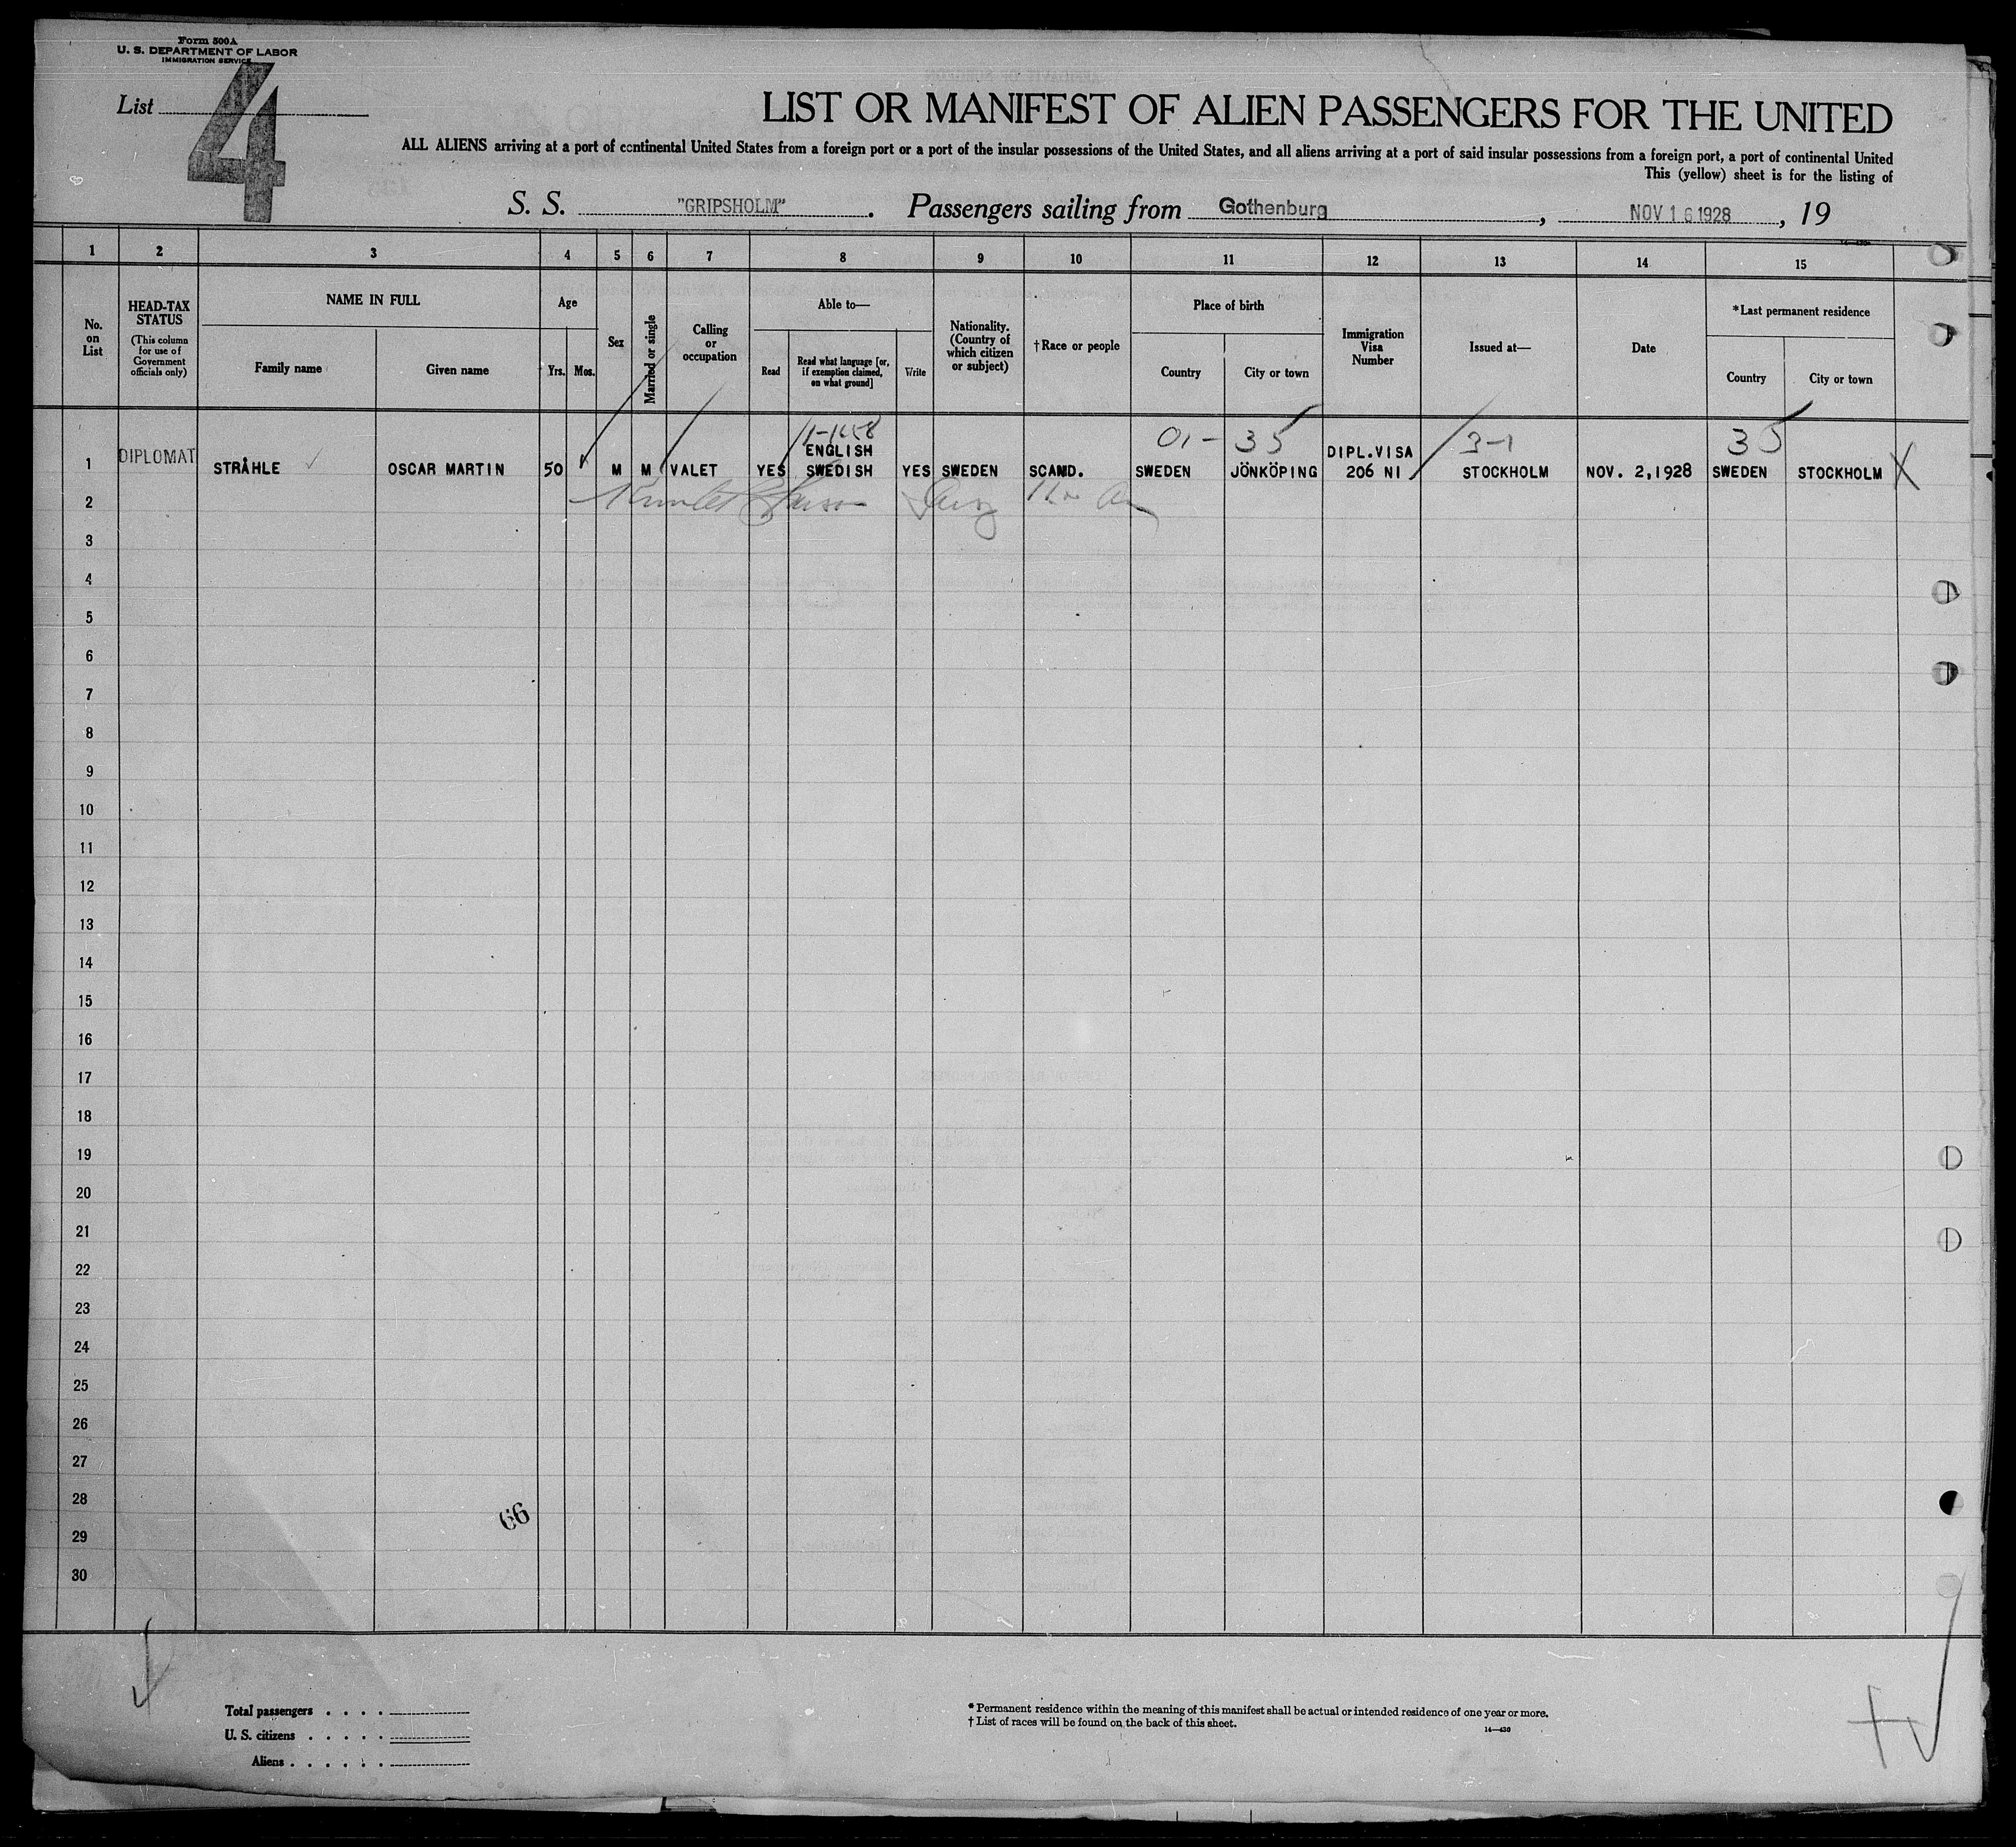 Form 500A
U. S. DEPARTMENT OF LABOR
IMMIGRATION SERVICE
List 4
LIST OR MANIFEST OF ALIEN PASSENGERS FOR THE UNITED
ALL ALIENS arriving at a port of continental United States from a foreign port or a port of the insular possessions of the United States, and all aliens arriving at a port of said insular possessions from a foreign port, a port of continental United
This (yellow) sheet is for the listing of
S. S. "GRIPSHOLM". Passengers sailing from Gothenburg, NOV 16 1928, 19
1 2 3 4 5 6 7 8 9 10 11 12 13 14 15
No. on List
HEAD-TAX STATUS
(This column for use of Government officials only)
NAME IN FULL
Family name
Given name
Age
Yrs. Mos.
Sex
Married or single
Calling or occupation
Able to—
Read
Read what language [or, if exemption claimed, on what ground]
Write
Nationality. (Country of which citizen or subject)
†Race or people
Place of birth
Country
City or town
Immigration Visa Number
Issued at—
Date
*Last permanent residence
Country
City or town
01- 35 3-1 35
1 DIPLOMAT STRÅHLE OSCAR MARTIN 50 M M VALET YES ENGLISH SWEDISH YES SWEDEN SCAND. SWEDEN JÖNKÖPING DIPL.VISA 206 NI STOCKHOLM NOV. 2,1928 SWEDEN STOCKHOLM X
2
3
4
5
6
7
8
9
10
11
12
13
14
15
16
17
18
19
20
21
22
23
24
25
26
27
28
66
29
30
Total passengers . . . .
U. S. citizens . . . . .
Aliens . . . . . .
* Permanent residence within the meaning of this manifest shall be actual or intended residence of one year or more.
† List of races will be found on the back of this sheet.
14—430